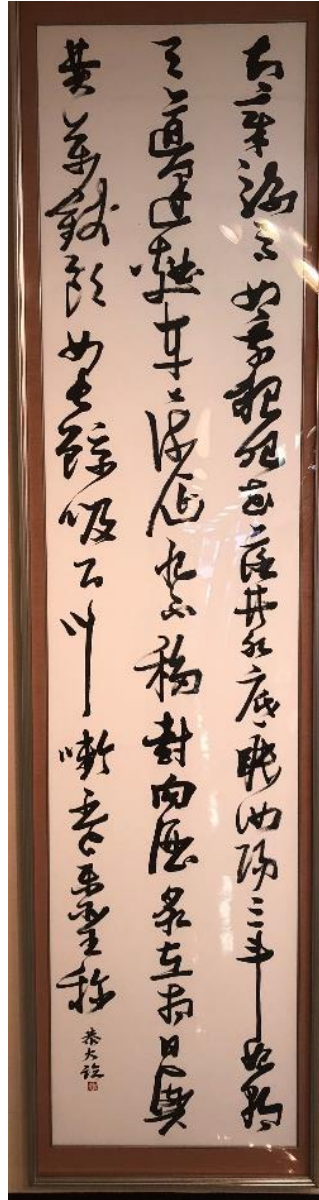 知章騎馬似乘船眼花落井水底眠汝陽三斗始朝
天道逢麴車口流涎恨不移封向酒泉左相日興
費萬錢飲如長鯨吸百川啣杯樂聖稱